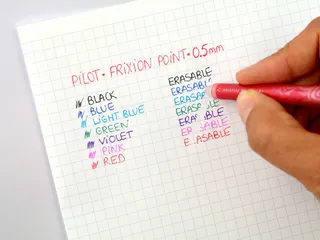 PILOT • FRIXION POINT • 0.5mm
BLACK
BLUE
LIGHT BLUE
GREEN
VIOLET
PINK
RED
ERASABLE
ERASABL
ERASAB
ERASABLE
ERASABLE
ERASABLE
ERASABLE